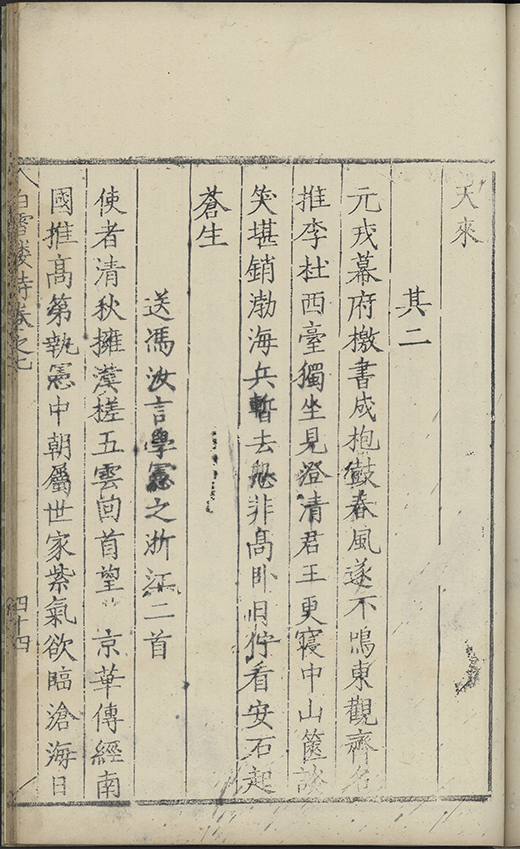 天來
其二
元戎幕府檄書成抱鼓春風遂不鳴東觀齊名
推李杜西臺獨坐見澄清君王更寢中山篋談
笑堪銷渤海兵暫去非高卧看安石起
蒼生
送馮汝言學憲之浙江二首
使者清秋擁漢槎五雲回首望京華傳經南
國推高第執憲中朝屬世家紫氣欲臨滄海日
白雪樓詩卷之七
四十四